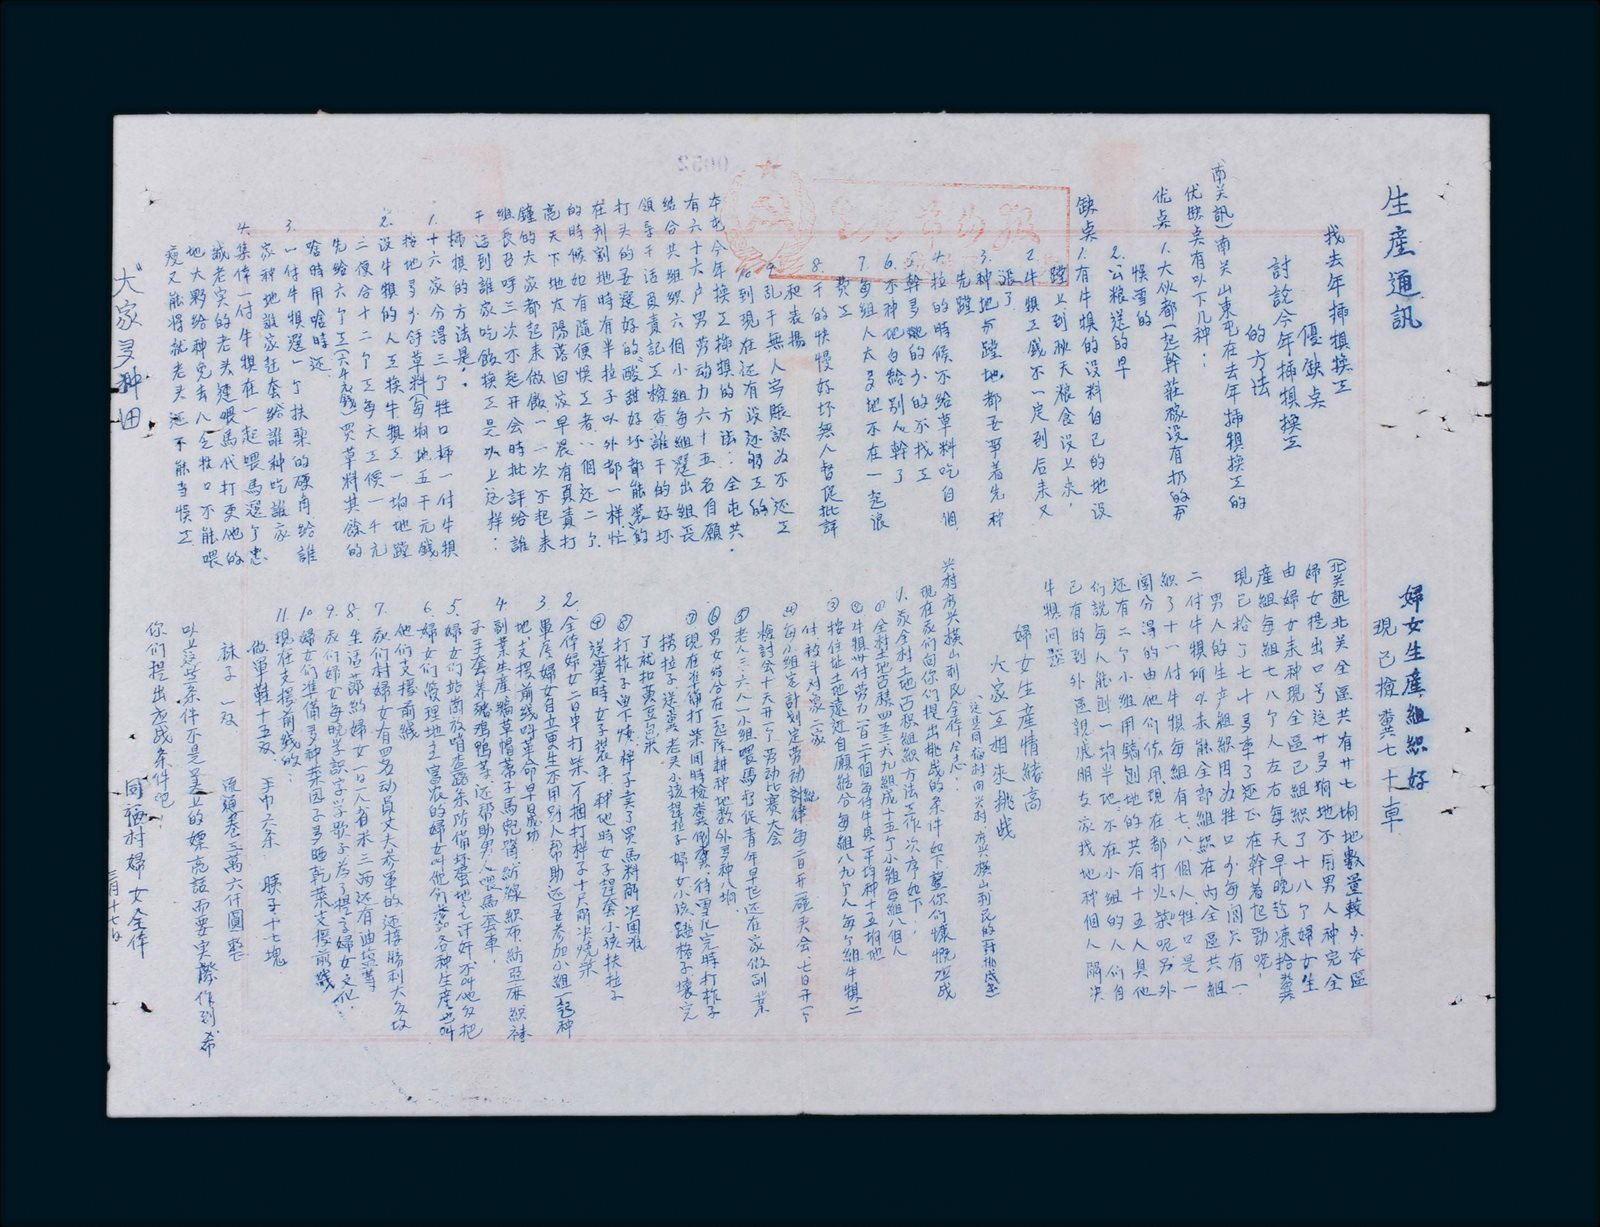 生產通訊
找去年插犋换工
優缺点
討論今年插犋換工
的方法
南关訊）南关山東屯在去年插犋換工的
优缺点有以下几种：
优点 1.大伙都一起幹莊稼没有扔的另
悮雪的
2.公粮送的早
缺点 1.有牛犋的没料自己的地没
蹚上到秋天粮食没上来，
2.牛犋工錢不一定到后来又
涨了
3.种地与蹚地都要爭着先种
先蹚
4.拉的時候不給草料吃自個
5.幹多她的少的不找工
6.不种地白給别人幹了
7.每組人太多地不在一起浪
費工
8.干的快慢好坏無人督促批評
和表揚
9.乱干無人写賬認为不还工
10.到現在还有没还够工的
本屯今年换工插犋的方法：全屯共
有六十六户男劳动力六十五名自願
結合共組織六個小組每組選出組長
領导干活負責記工檢查誰干的好坏
打头的要選好的酸甜好坏都能装的
在割割地時有半拉子以外都一样忙
的時候如有随便悮工者一個还二个
亮天下地太陽落回家早晨有頁責打
鐘的大家都起来做飯一二次不起来
組長召呼三次不起开会時批評給誰
干活到誰家吃飯换工是以上这样：
插犋的方法是：
1.十六家分得三个牲口插一付牛犋
按地多少舒草料（每垧地五千元錢
2.没牛犋的人工换牛犋工一垧地蹚
二便合十二个工每天工便一千元
先給六个工（六千元錢）買草料其餘的
啥時用啥時还
3.一付牛犋選一个扶犂的硬角給誰
家种地誰家赶套給誰种吃誰家
4.集偉一付牛犋在一起喂馬選个忠
誠老实的老头連喂馬代打更他的
地大夥給种完去人乞牲口不能喂
瘦又能将就老头还不能当悮工
“大家多种田
婦女生產組織好
現已撿糞七十車
（北关訊）北关全區共有廿七垧地數量較少本區
婦女提出口号这廿多垧地不用男人种完全
由婦女来种現全區已組織了十八个婦女生
產組每組七八个人左右每天早晚趁凍拾糞
現已拾了七十多車了还正在幹着起勁呢
男人的生产組織因为牲口少每閭只有一
二付牛犋所以未能全部組織在内全區共組
織了十一付牛犋每組有七、八個人牲口是一
閭分得的由他们伙用現在都打火柴呢另外
还有二个小組用鎬刨地的共有十五人具他
们說每人能刨一垧半地不在小組的人们自
己有的到外區親戚朋友家找地种個人解决
牛犋问題
婦女生産情緒高
大家互相来挑战
这是同福村向兴村 店兴 横山 利民的村挑战書
兴村店兴横山利民全体仝志：
現在我们向你们提出挑战的条件如下望你们慷慨應战
1.我全村土地占积組織方法工作次序如下，
①全村土地占積四五三六九組成十五个小組每組八個人
②牛犋卅付劳力一百二十個每付牛具平均种十五垧地
③按住址土地遠近自願結合每組八九个人每个組牛犋二
付 被斗对家二家
④每小組定計划定劳动紀律每二日开一碰头会七日开一个
檢討会十天开一个劳动比賽大会
⑤老人三六八一小組喂馬督促青年早起还在家做副業
⑥男女結合在一起除耕种地数外多种八垧
⑦現在准備打柴同時撿糞倒糞待雪化完時打柞子
捞拉子送糞老头小孩趕拉子婦女小孩蹬格子壤完
了就扣黄豆包米
⑧打柞子迪下烧榟子卖了買馬料解决困难
⑨送糞時女子裝車种地時女子趕套小孩扶拉子
2.全体婦女二日中打柴一个捆打榟子十尺解决烧柴
3.軍属婦女自立更生不用别人帮助还要参加小組一起种
地、支援前线呀革命早日成功
4.副業生產編草帽蓆子馬兜嘴、紡線織布、紡亞麻織袜
子手套養豬鸡鴨等还帮助男人喂馬套車，
5.婦女们站崗放哨查路条防備坏蛋地亡汗奸不叫地女把
6.婦女们管理地主富农的婦女叫他们参加各种生產也叫
他们支援前线
7.我们村婦女有四名动員丈夫参軍的迎接勝利大反攻
8.生活節約婦女一日一人省米三两还有油塩等
9.我们婦女每晚学識字学歌子為了提高婦女文化：
10.婦女们準備多种菜园子多晒乾菜支援前线
11.現在支援前线的：
做軍鞋十五双、 手巾六条 胰子十七塊
袜子 一双 流通卷三萬六仟圓整
以上这些条件不是呈上的嫖亮話而要实際作到希
你们提出应战条件吧
同福村婦女全体
三月十七日
0052